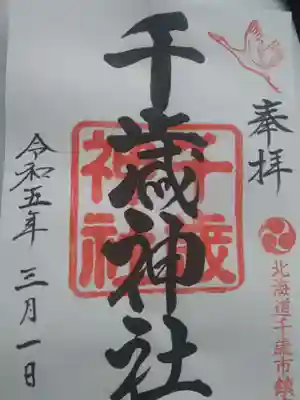 奉拝
北海道千歳市
千歳神社
千歳
神社
令和五年 三月一日